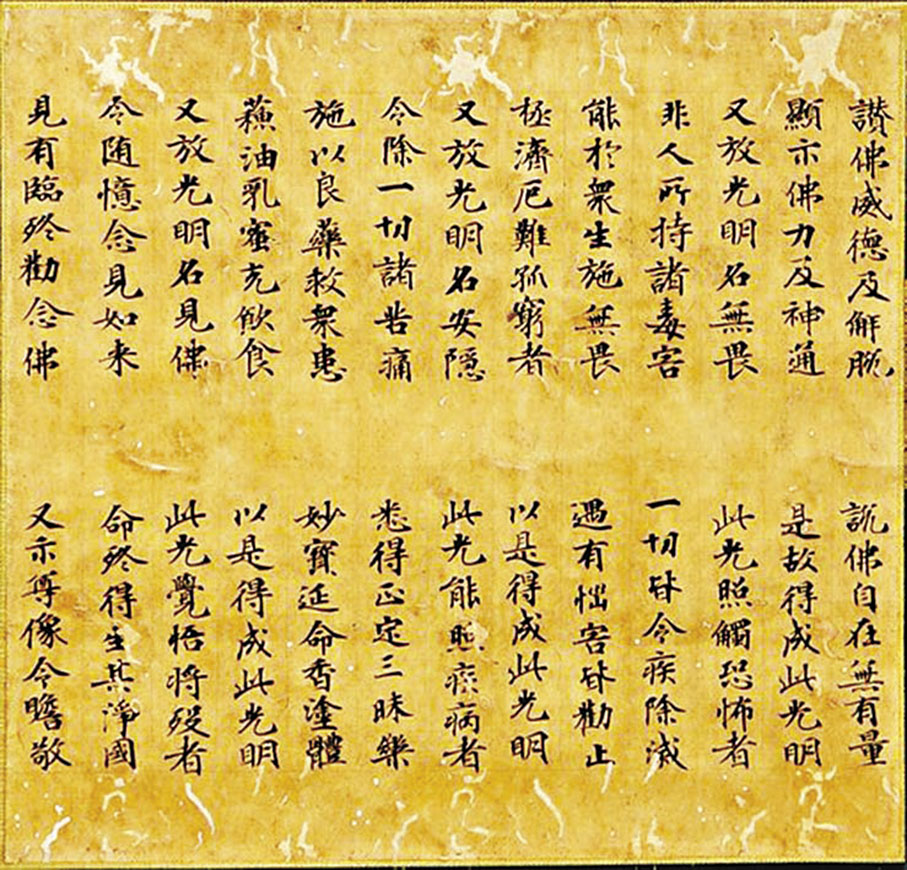 讃佛威德及解脫 說佛自在無有量
顯示佛力及神通 是故得成此光明
又放光明名無畏 此光照觸恐怖者
非人所持諸毒害 一切皆令疾除滅
能於衆生施無畏 遇有惱害皆勸止
拯濟厄難孤窮者 以是得成此光明
又放光明名安隱 此光能照疾病者
令除一切諸苦痛 悉得正定三昧樂
施以良藥救衆患 妙寶延命香塗體
蘇油乳蜜充飲食 以是得成此光明
又放光明名見佛 此光覺悟將歿者
令随憶念見如来 命終得生其淨國
見有臨終勸念佛 又示尊像令瞻敬